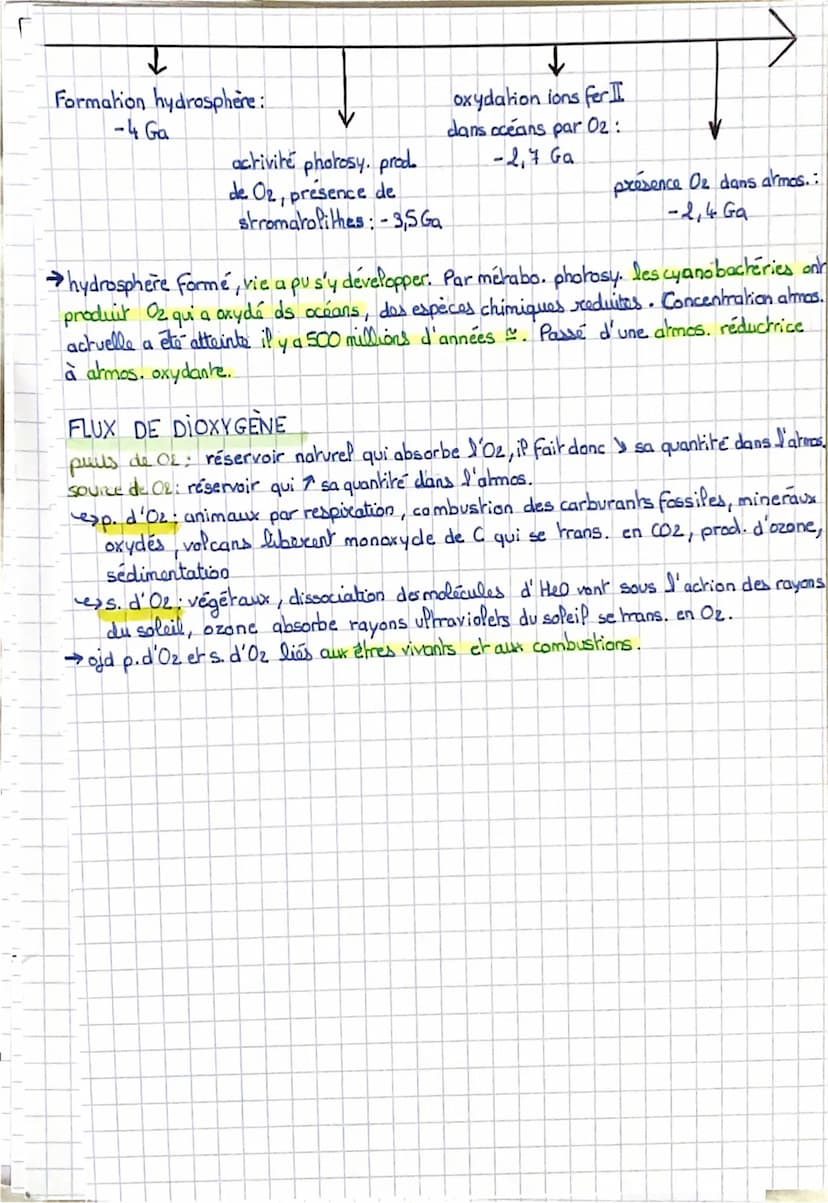 Formation hydrosphère :
-4 Ga
activité photosy. prod.
de O2, présence de
stromatolithes : -3,5 Ga
oxydation ions fer II
dans océans par O2 :
-2,7 Ga
présence O2 dans atmos. :
-2,4 Ga
→ hydrosphère formé, vie a pu s'y développer. Par métabo. photosy. les cyanobactéries ont
produit O2 qui a oxydé ds océans, des espèces chimiques réduites. Concentration atmos.
actuelle a été atteinte il y a 500 millions d'années ≃. Passé d'une atmos. réductrice
à atmos. oxydante.
FLUX DE DIOXYGÈNE
puits de O2 : réservoir naturel qui absorbe l'O2, il fait donc ↘ sa quantité dans l'atmos.
source de O2 : réservoir qui ↗ sa quantité dans l'atmos.
↪ p. d'O2 : animaux par respiration, combustion des carburants fossiles, minéraux
oxydés, volcans libèrent monoxyde de C qui se trans. en CO2, prod. d'ozone,
sédimentation
↪ s. d'O2 : végétaux, dissociation des molécules d'H2O vont sous l'action des rayons
du soleil, ozone absorbe rayons ultraviolets du soleil se trans. en O2.
→ ojd p. d'O2 et s. d'O2 liés aux êtres vivants et aux combustions.